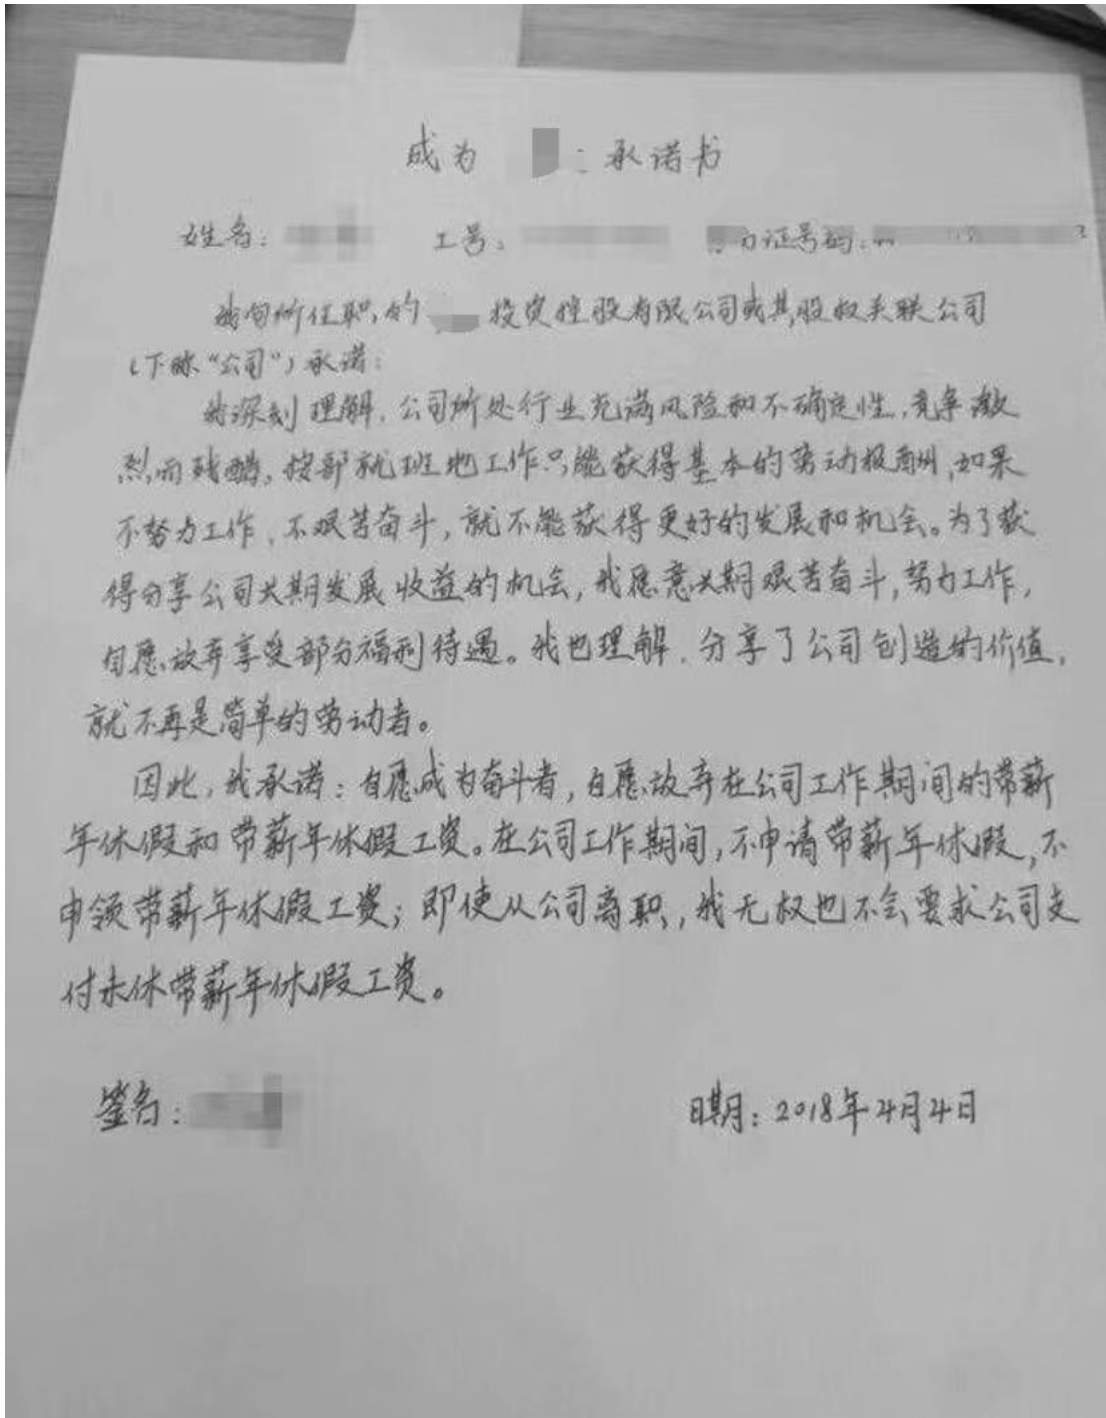 成为 : 承诺书
姓名: 工号: 证号码:
我向所任职的 投资控股有限公司或其股权关联公司
(下称“公司”)承诺:
我深刻理解,公司所处行业充满风险和不确定性,竞争激
烈而残酷,按部就班地工作只能获得基本的劳动报酬,如果
不努力工作,不艰苦奋斗,就不能获得更好的发展和机会。为了获
得分享公司长期发展收益的机会,我愿意长期艰苦奋斗,努力工作,
自愿放弃享受部分福利待遇。我也理解,分享了公司创造的价值,
就不再是简单的劳动者。
因此,我承诺:自愿成为奋斗者,自愿放弃在公司工作期间的带薪
年休假和带薪年休假工资。在公司工作期间,不申请带薪年休假,不
申领带薪年休假工资;即使从公司离职,我无权也不会要求公司支
付未休带薪年休假工资。
签名: 日期:2018年4月4日